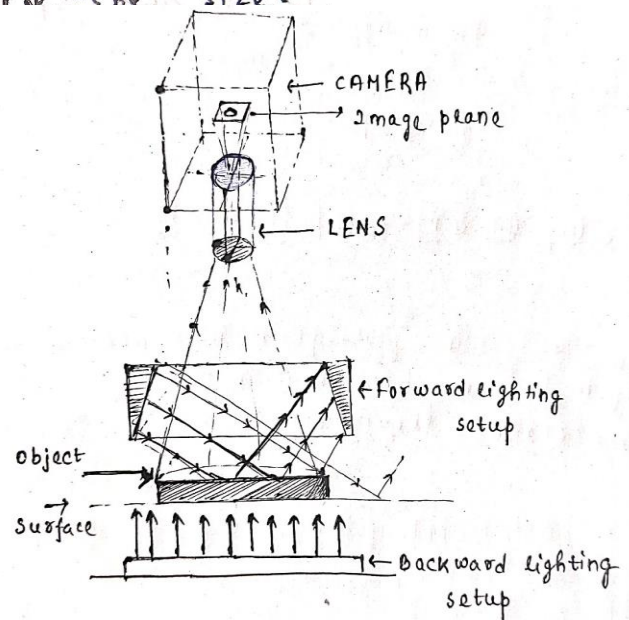 CAMERA
Image plane
LENS
Forward lighting
setup
Object
Surface
Backward lighting
setup